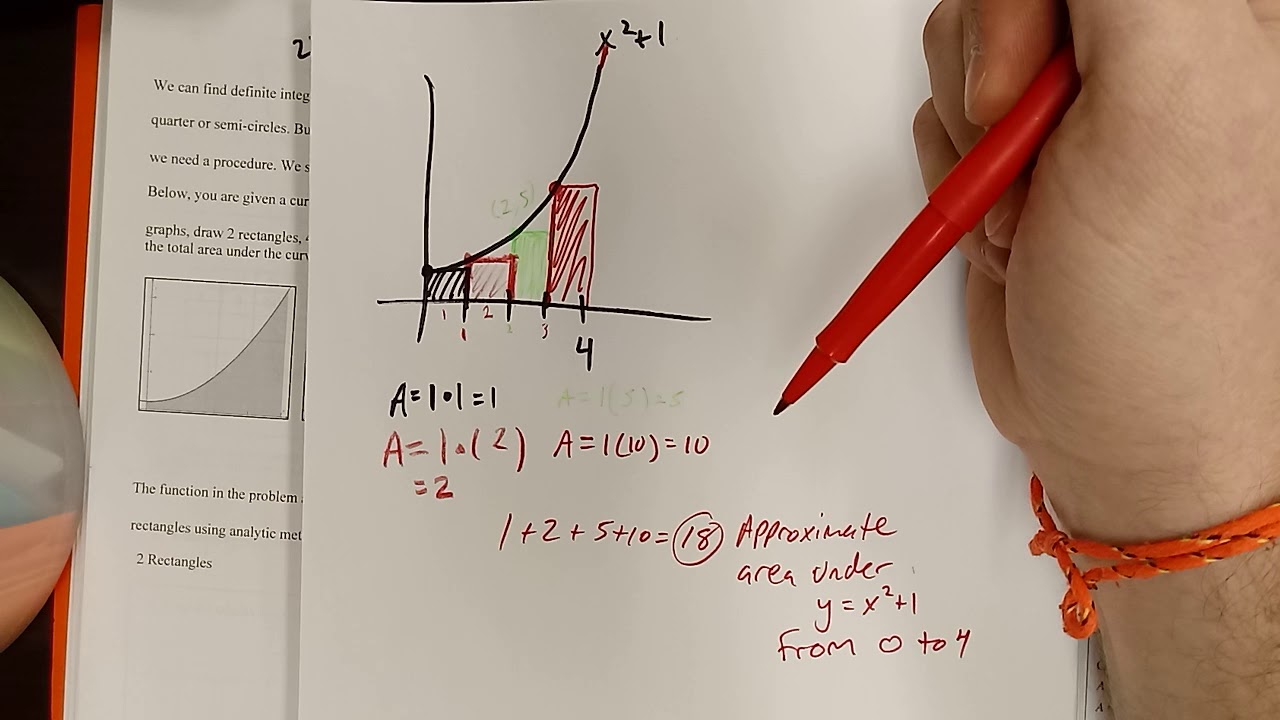 2
We can find definite integ
quarter or semi-circles. Bu
we need a procedure. We s
Below, you are given a cur
graphs, draw 2 rectangles,
the total area under the cur
The function in the problem
rectangles using analytic met
2 Rectangles
x²+1
(2,5)
1 2
1 2 3
4
A=1•1=1 A=1(5)=5
A=1•(2) A=1(10)=10
=2
1+2+5+10=18 Approximate
area under
y=x²+1
from 0 to 4
C
A
A